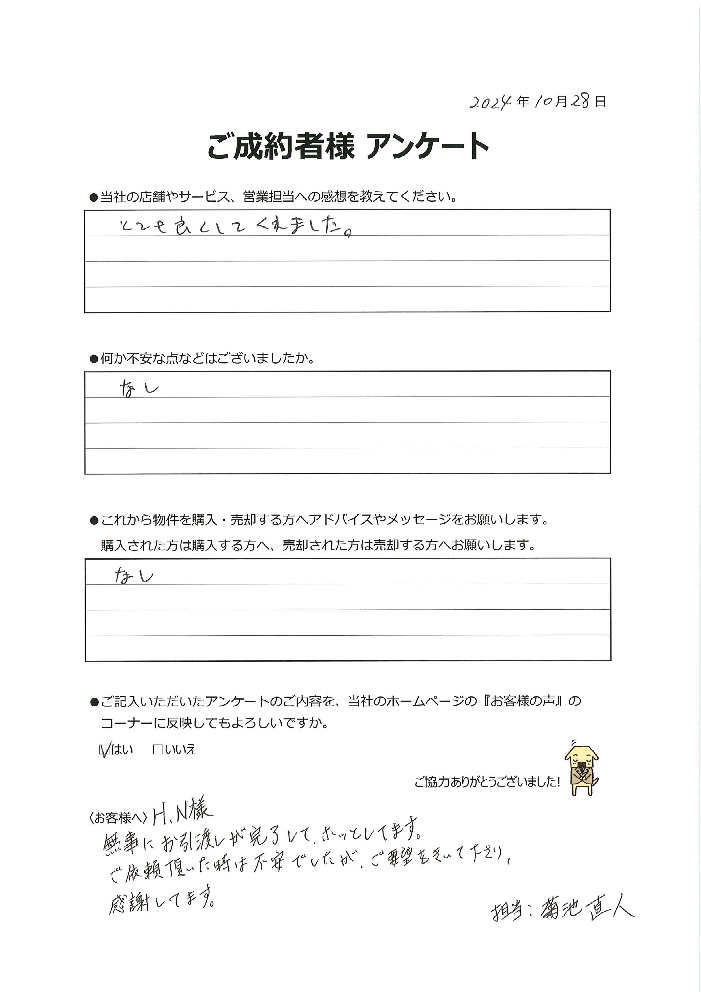 2024年10月28日
ご成約者様 アンケート
●当社の店舗やサービス、営業担当への感想を教えてください。
とても良くしてくれました。
●何か不安な点などはございましたか。
なし
●これから物件を購入・売却する方へアドバイスやメッセージをお願いします。
購入された方は購入する方へ、売却された方は売却する方へお願いします。
なし
●ご記入いただいたアンケートのご内容を、当社のホームページの『お客様の声』の
コーナーに反映してもよろしいですか。
☑はい □いいえ
ご協力ありがとうございました!
〈お客様へ〉H.N様
無事にお引渡しが完了して、ホッとしてます。
ご依頼頂いた時は不安でしたが、ご要望をきいて下さり、
感謝してます。
担当:菊池直人